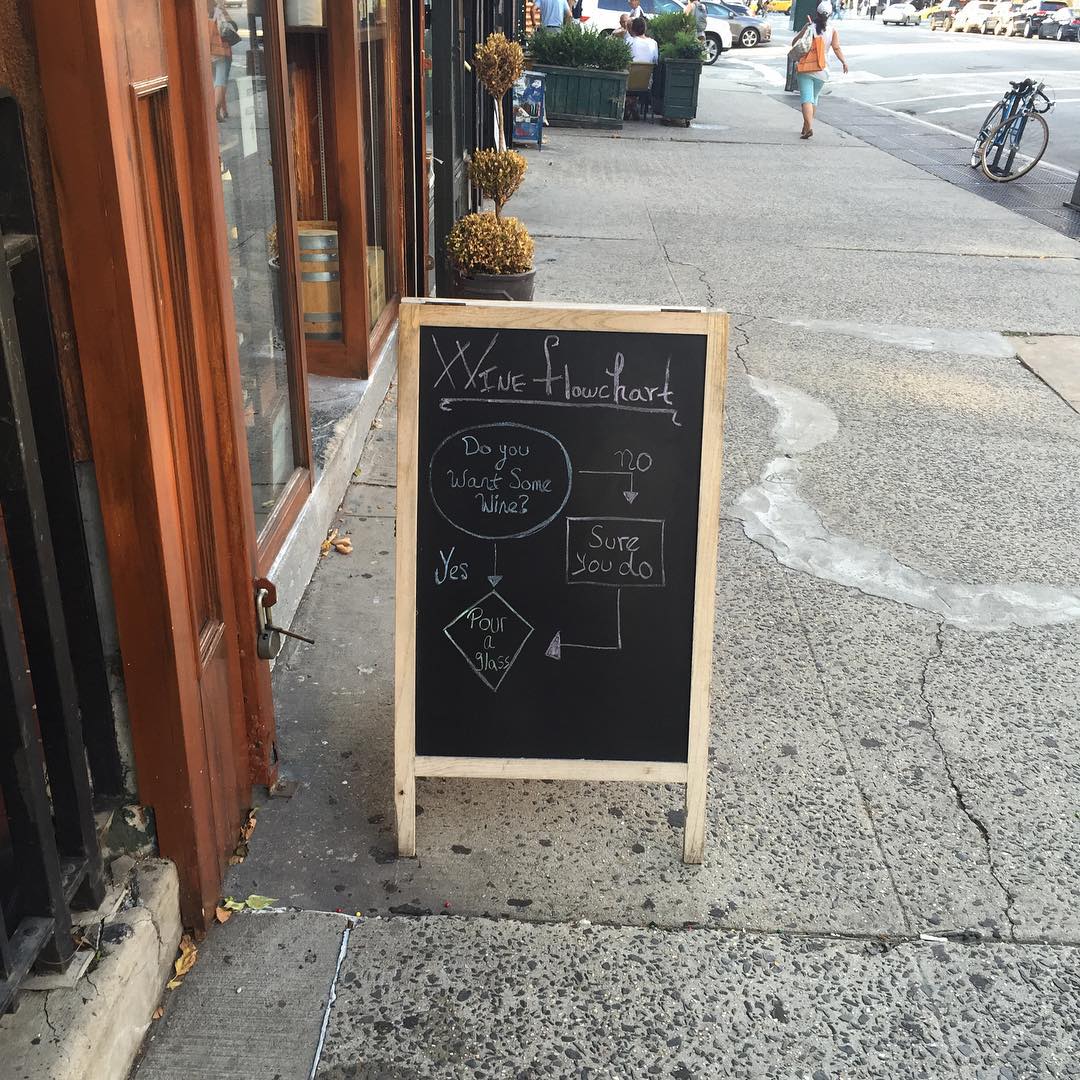 Wine flowchart
Do you
Want Some
Wine?
no
Sure
you do
Yes
Pour
a
glass